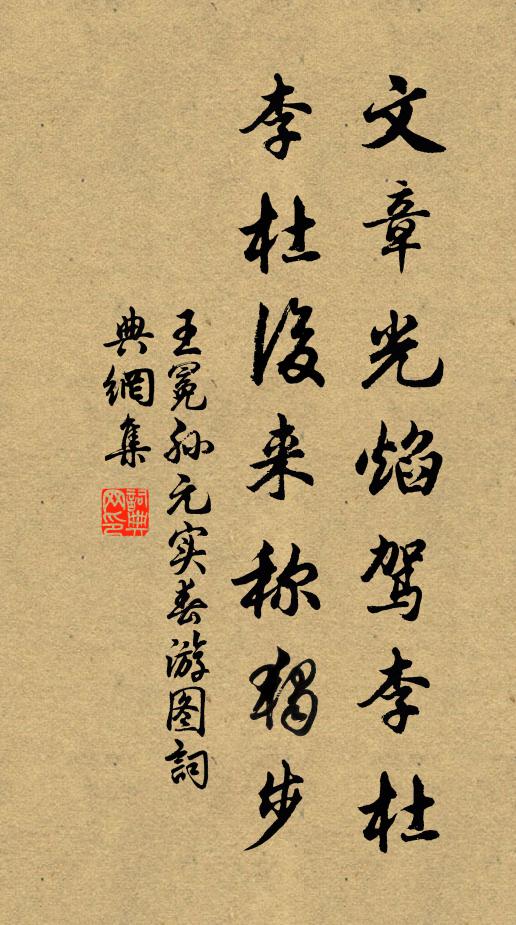 文章光焰驾李杜
李杜後来称独步
王冕孙元实春游图詞
典網集
詞典网印